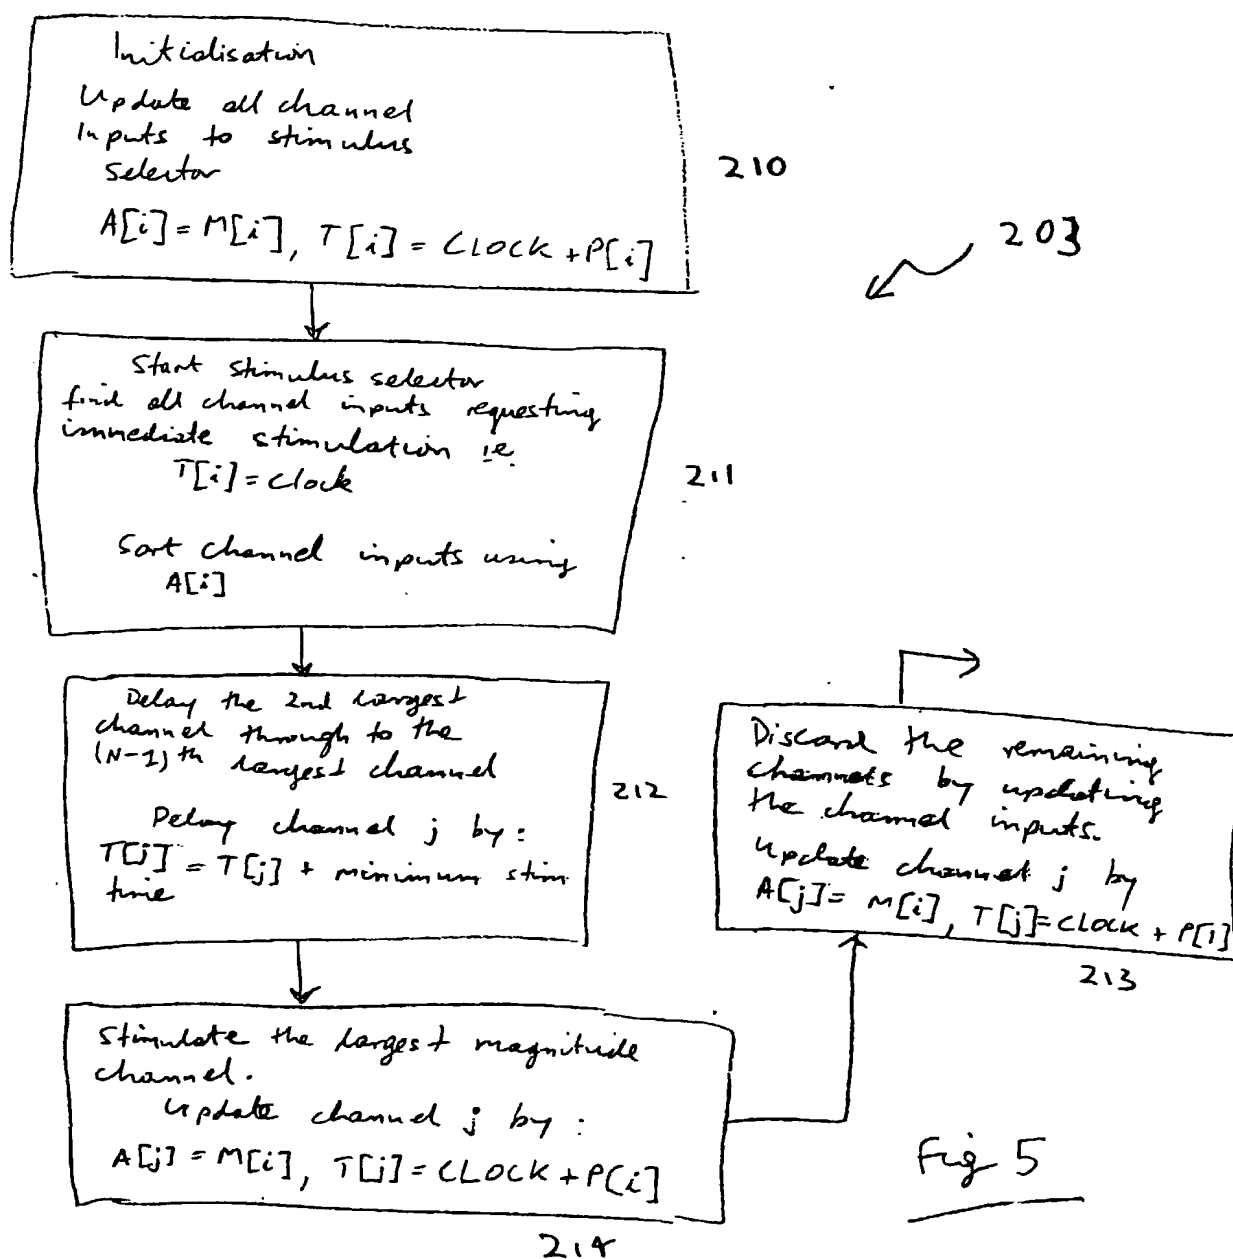 Initialisation
Update all channel
Inputs to stimulus
selector
A[i] = M[i], T[i] = CLOCK + P[i]
210
203
Start stimulus selector
find all channel inputs requesting
immediate stimulation ie
T[i] = Clock
Sort channel inputs using
A[i]
211
Delay the 2nd largest
channel through to the
(N-1)th largest channel
Delay channel j by:
T[j] = T[j] + minimum stim
time
212
Stimulate the largest magnitude
channel.
Update channel j by:
A[j] = M[i], T[j] = CLOCK + P[i]
214
Discard the remaining
channels by updating
the channel inputs.
Update channel j by
A[j] = M[i], T[j] = CLOCK + P[i]
213
Fig 5